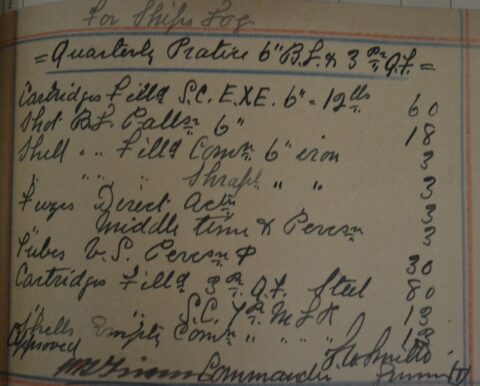 For Ships Log
= Quarterly Pratice 6" B.L. & 3 Pr Q.F. =
Cartridges Filld S.C. E.X.E. 6" = 12 lbs 60
Shot B.L. Pallsr 6" 18
Shell " " Filld Comn 6" iron 3
" " " Shrapl " " 3
Fuzes Direct Actn 3
" Middle time & Percsn 3
Tubes V.S. Percsn 30
Cartridges Filld 3 Pr Q.F. Steel 80
" S.C. 7 Pr M L R 13
Shells Empty Comn " " " "
Approved
Commander